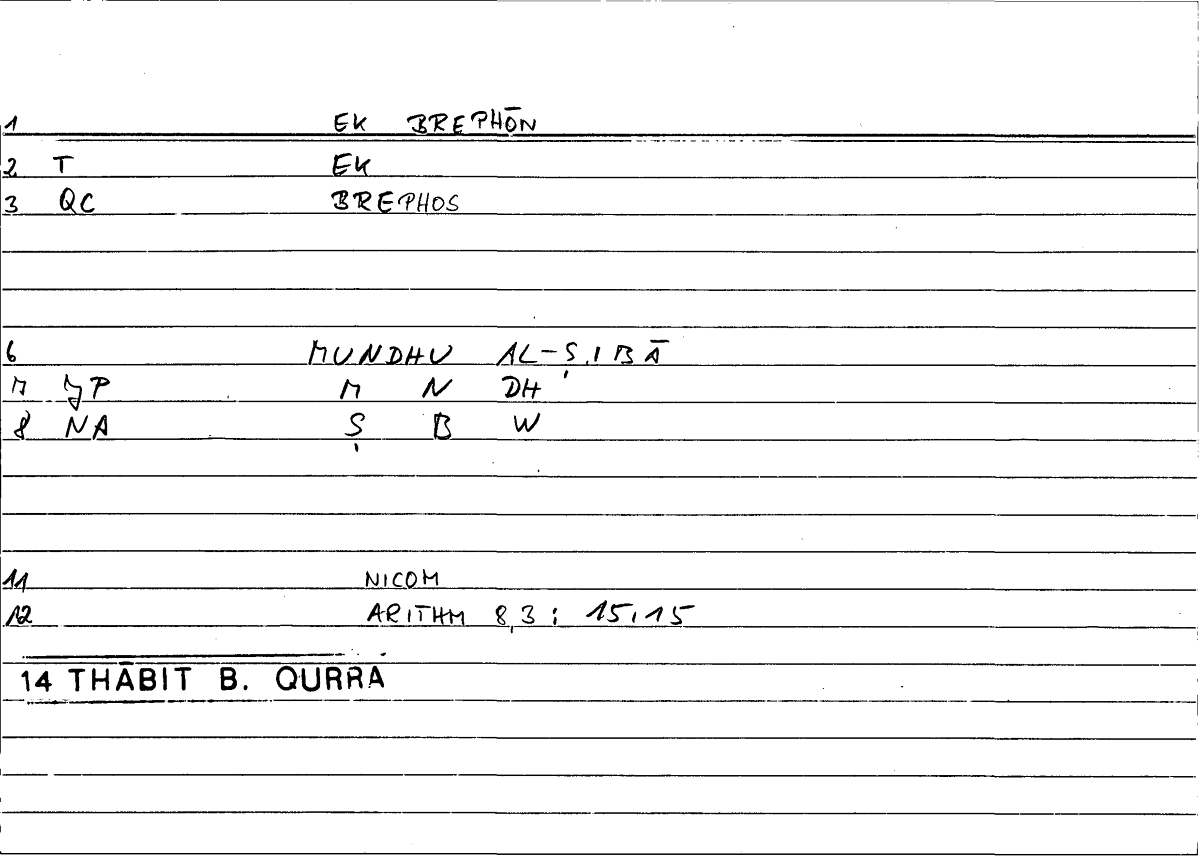 1 EK BREPHŌN
2 T EK
3 QC BREPHOS
6 MUNDHU AL-ṢIBĀ
7 JP M N DH
8 NA Ṣ B W
11 NICOM
12 ARITHM 8,3 : 15,15
14 THĀBIT B. QURRA